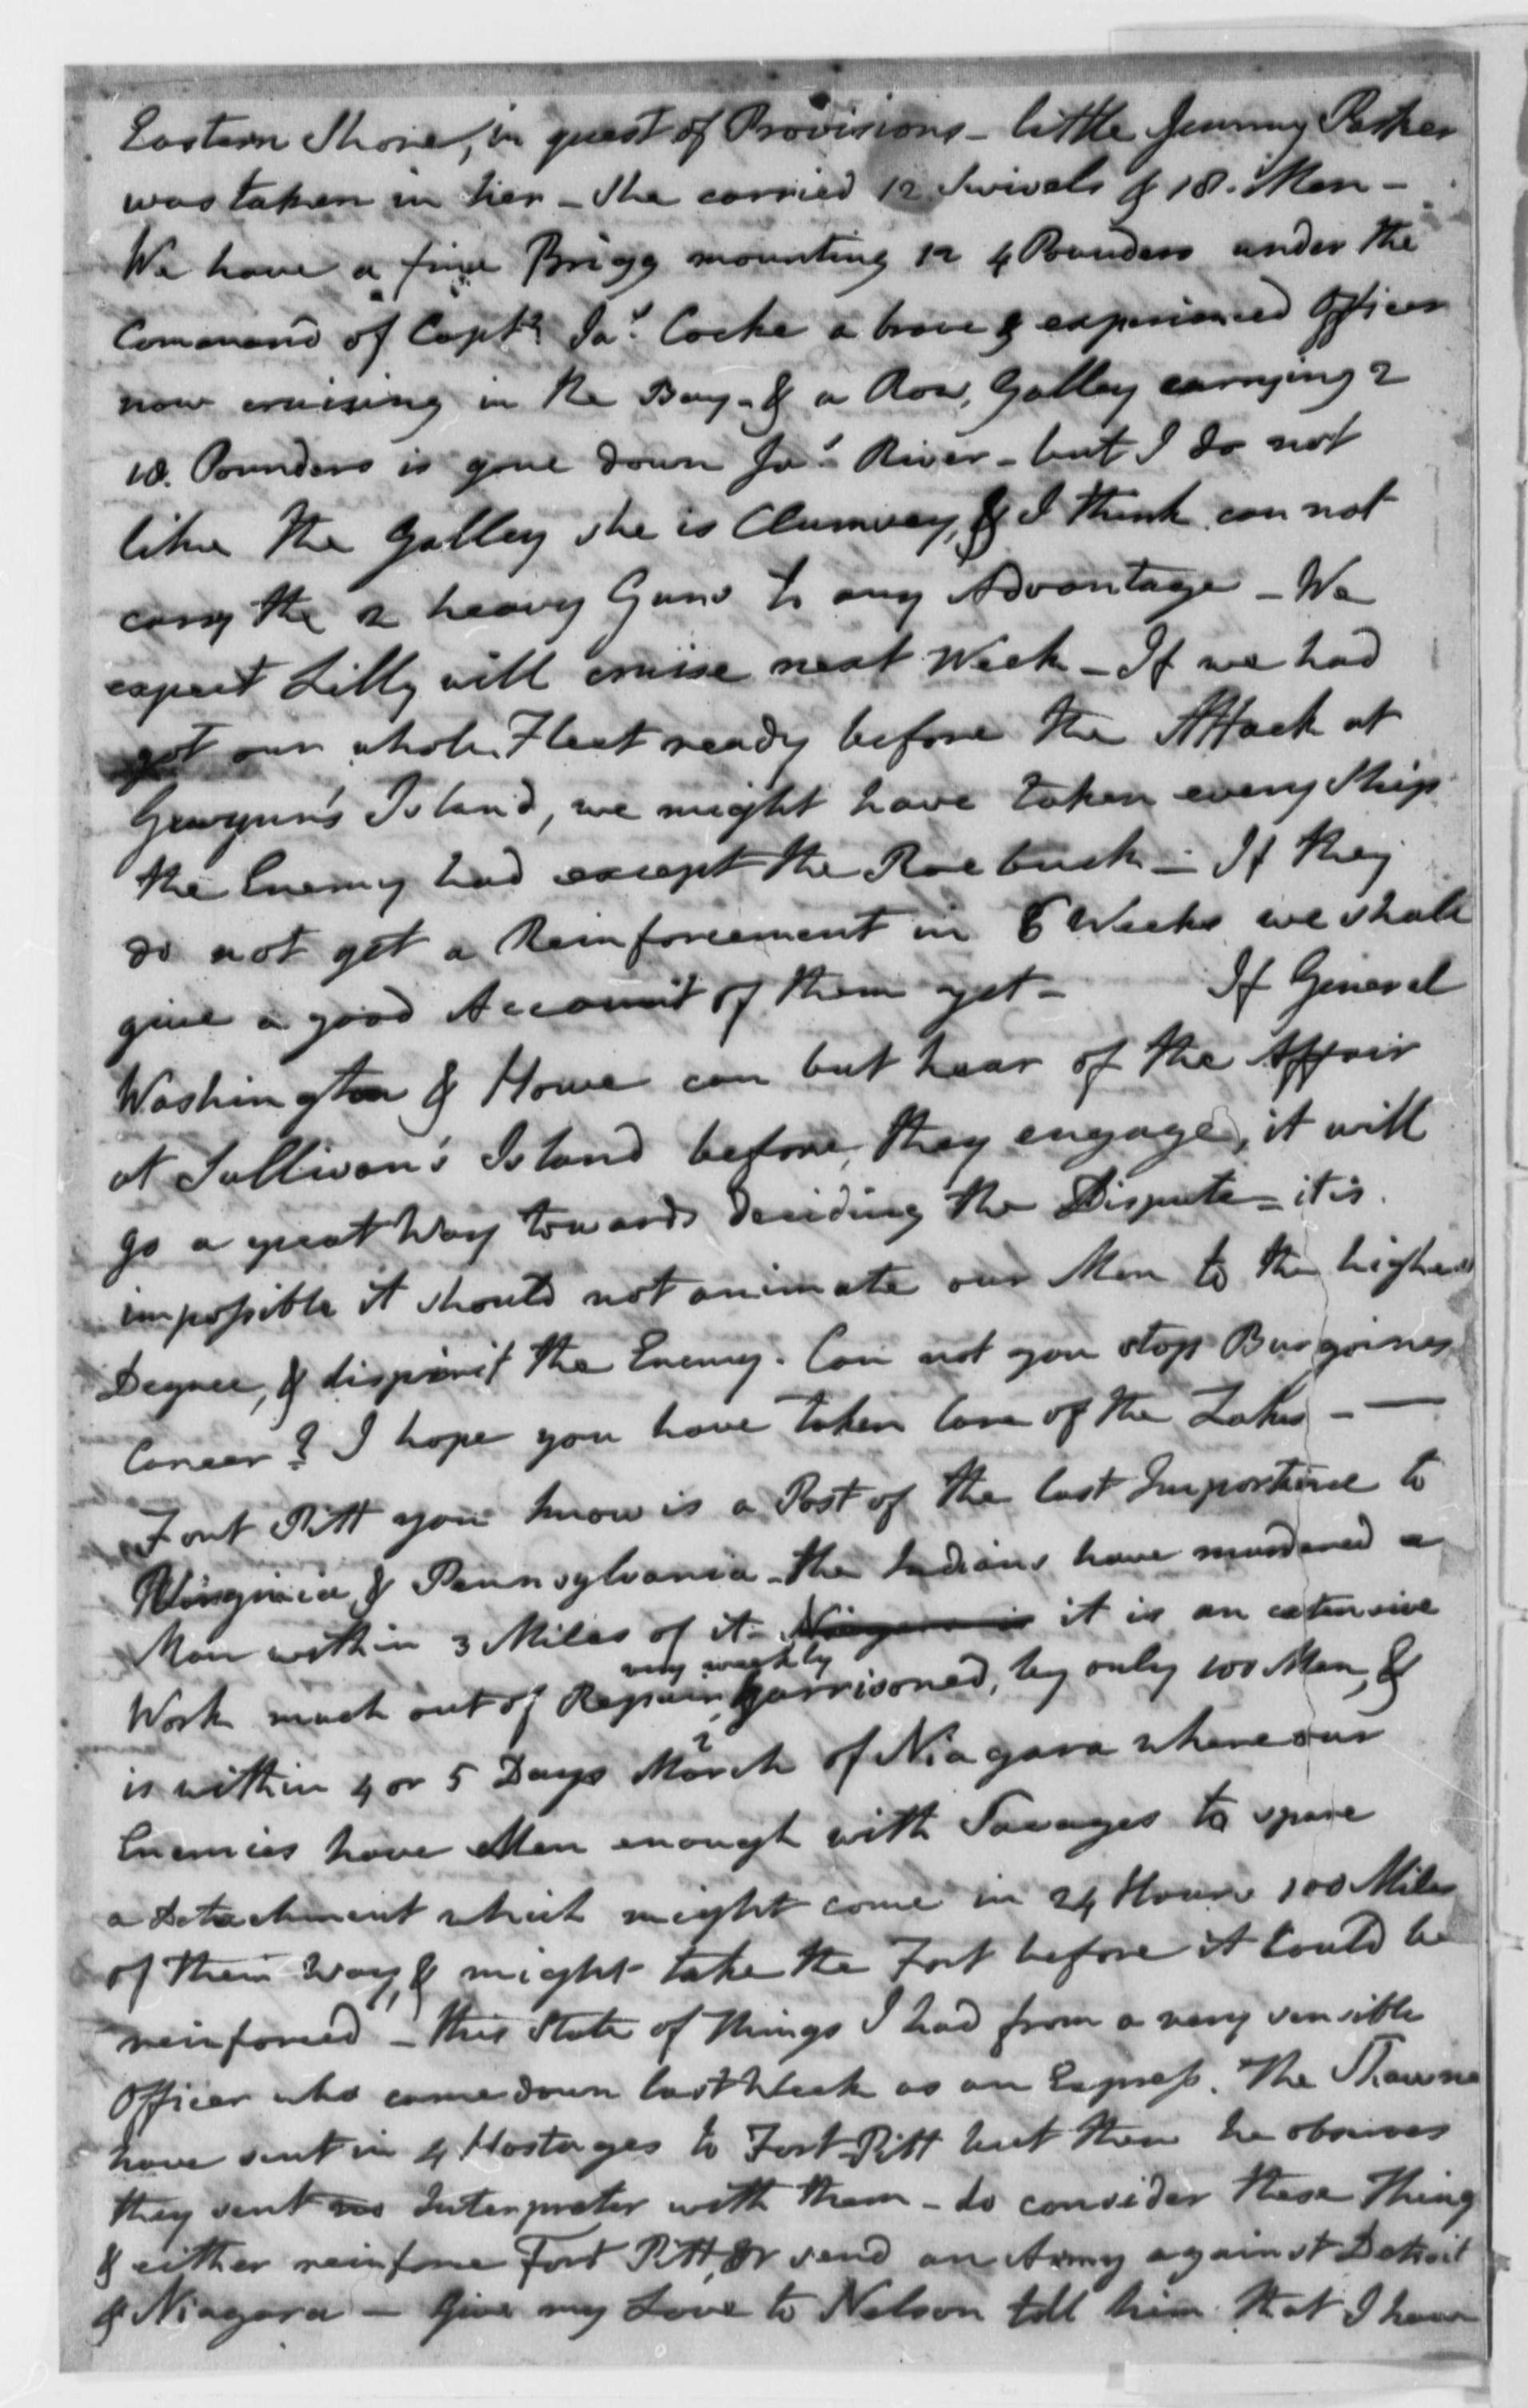 Eastern Shore, in quest of Provisions - little Jemmy Parker
was taken in her - She carried 12 Swivels & 18. Men -
We have a fine Brigg mounting 12 4 Pounders under the
Command of Captn. Jas. Cocke a brave & experienced Officer
now cruising in the Bay - & a Row, Galley carrying 2
18. Pounders is gone down Jas. River - but I do not
like the Galley she is Clumsey, & I think can not
carry the 2 heavy Guns to any Advantage - We
expect Lilly will cruise next Week - If we had
got our whole Fleet ready before the Attack at
Gwynn's Island, we might have taken every Ship
the Enemy had except the Roebuck - If they
do not get a Reinforcement in 6 Weeks we shall
give a good Account of them yet - If General
Washington & Howe can but hear of the Affair
at Sullivan's Island before, they engage, it will
go a great Way towards deciding the Dispute - it is
impossible it should not animate our Men to the highest
Degree, & dispirit the Enemy. Can not you stop Burgoines
Career? I hope you have taken Care of the Lakes -
Fort Pitt you know is a Post of the last Importance to
Virginia & Pennsylvania - the Indians have murdered a
Man within 3 Miles of it - Niagara is it is an extensive
Work much out of Repair, very weakly Garrisoned, by only 100 Men, &
is within 4 or 5 Days March of Niagara where our
Enemies have Men enough with Savages to spare
a Detachment which might come in 24 Hours 100 Miles
of their Way, & might take the Fort before it Could be
reinforced - this State of things I had from a very sensible
Officer who came down last Week as an Express. The Shawne
have sent in 4 Hostages to Fort Pitt but then he observes
they sent no Interpreter with them - do consider these Thing
& either reinforce Fort Pitt, or send an Army against Detroit
& Niagara - Give my Love to Nelson tell him that I have